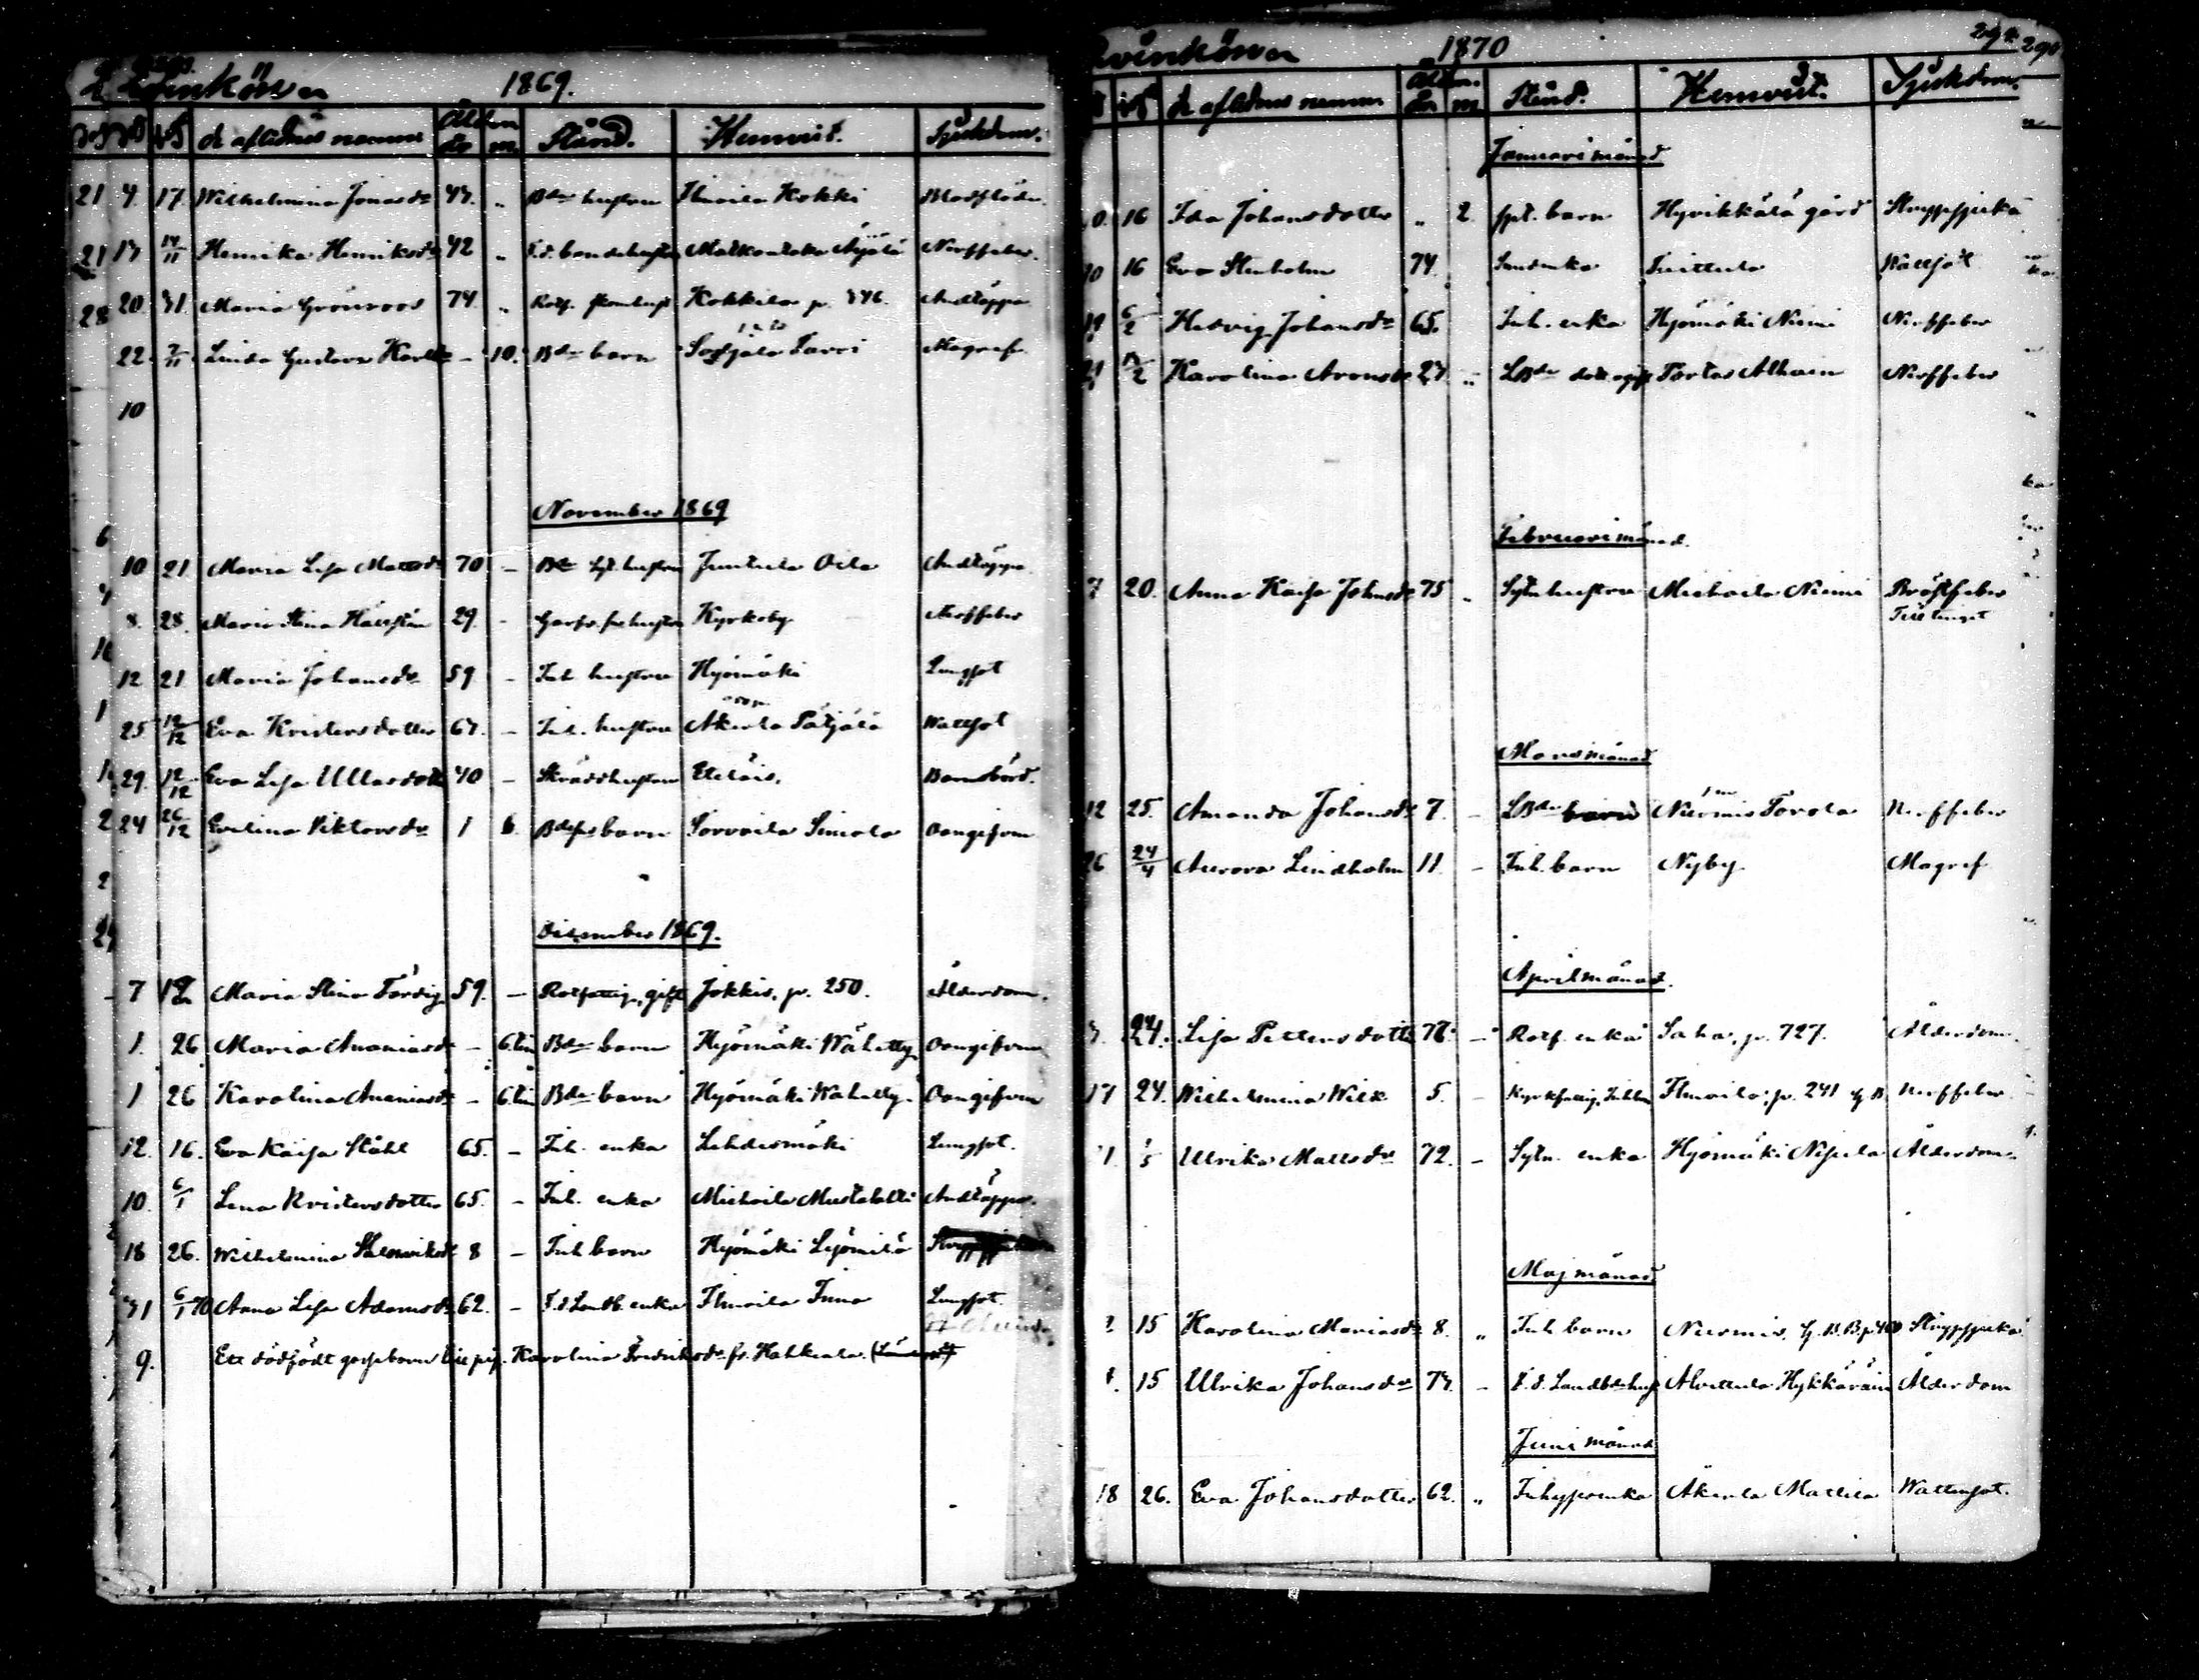 Qvinkönen 1869.
de aflidnes namn Ålder år m. Stånd. Hemvist. Sjukdom.
21 4. 17. Wilhelmina Jonasdr 43. " Bde hustru Ilmoila Kokki Blodflöde.
21 13 14/11 Henrika Henriksdr 42 " F.d. bondehustru Matkantaka Äijälä Nerffeber.
28 20. 31. Maria Grönroos 74. " Kokkila p. 346. Andtäppa
22. 7/11 Linda Gustava Karlsdr – 10. Bde barn Magref
10
November 1869
10 21. Maria Lisa Mattsdr 70 – Bde Syt. hustru Juntula Oila Andtäppa.
8. 28. Maria Stina Hällsten 29. – Kyrkoby Nerffeber
12. 21. Maria Johansdr 59 – Inh. hustru Hyömäki Lungsot
25 12/12 Eva Kristersdotter 67. – Inh. hustru Akerla Pätjälä Wattsot
29. 12/12 Eva Lisa Ullasdotter 40 – Skräddhustru Eteläis. Barnsbörd.
24 26/12 Evelina Viktorsdr 1 6. barn Sorvoila Simola Oangifven
December 1869.
7 12 Maria Stina Färdig 59. – Rotfattig, gift Jokkis, p. 250. Ålderdom.
1. 26 Maria Ananiasdr – 6. tim Bde barn Hyömäki Wähetty. Oangifven
1 26 Karolina Ananiasdr – 6. tim Bde barn Hyömäki Wähetty. Oangifven
12. 16. Eva Kaisa Ståhl 65. – Inh. enka Lehdesmäki Lungsot.
10. 6/1 Lena Kristersdotter 65. – Inh. enka Michoila Mustalahti Andtäppa.
18 26. Wilhelmina 8 – Inh barn Hyömäki Lyömilä
31 6/1 70 Anna Lisa Adamsdr 62. – F.d. Landb. enka Ilmoila Inna Lungsot.
9. Ett dödfödt gossebarn till pig. Karolina Fredriksdr fr. Hahkiala.
Qvinkönen 1870 294. 290
de aflidnes namn Ålder. år m Stånd. Hemvist. Sjukdom.
Januari månad
0. 16 Ida Johansdotter " 2. spt. barn Hyvikkälä gård Strypsjuka
10 16 Eva Stenholm 74. enka Tuittula Wattsot
19 6/2 Hedvig Johansdr 65. Inh. enka Hyömäki Niemi Nerffeber
21 13/2 Karolina Aronsdr 23. " LBde dott ogift Tortas Alhain Nerffeber
Februari månad.
7 20. Anna Kaisa Johansdr 75 " Sytn hustru Michoila Niemi Bröstfeber
Mars månad
12 25. Amanda Johansdr 7. – LBde barn Nurmis Tovola Nerffeber
26 24/4 Aurora Lindholm 11. – Inh. barn Nyby. Magref
April månad.
3. 24. Lisa Pettersdotter 76. – Rotf. enka Saha, p. 727. Ålderdom.
17 24. Wilhelmina Wilk 5. – Ilmoila, p. 241 Nerffeber
1. 1/5 Ulrika Mattsdr 72. – Sytn. enka Hyömäki Nipula Ålderdom.
Maj månad
2 15 Karolina Mariasdr 8. " Inh barn Nurmis Strypsjuka
15 Ulrika Johansdr 73. – F.d. Landbde hust Alvettula Hykkäräin Ålderdom
Juni månad
18 26. Eva Johansdotter 62. " Inhyseenka Äkerla Mattila Wattensot.